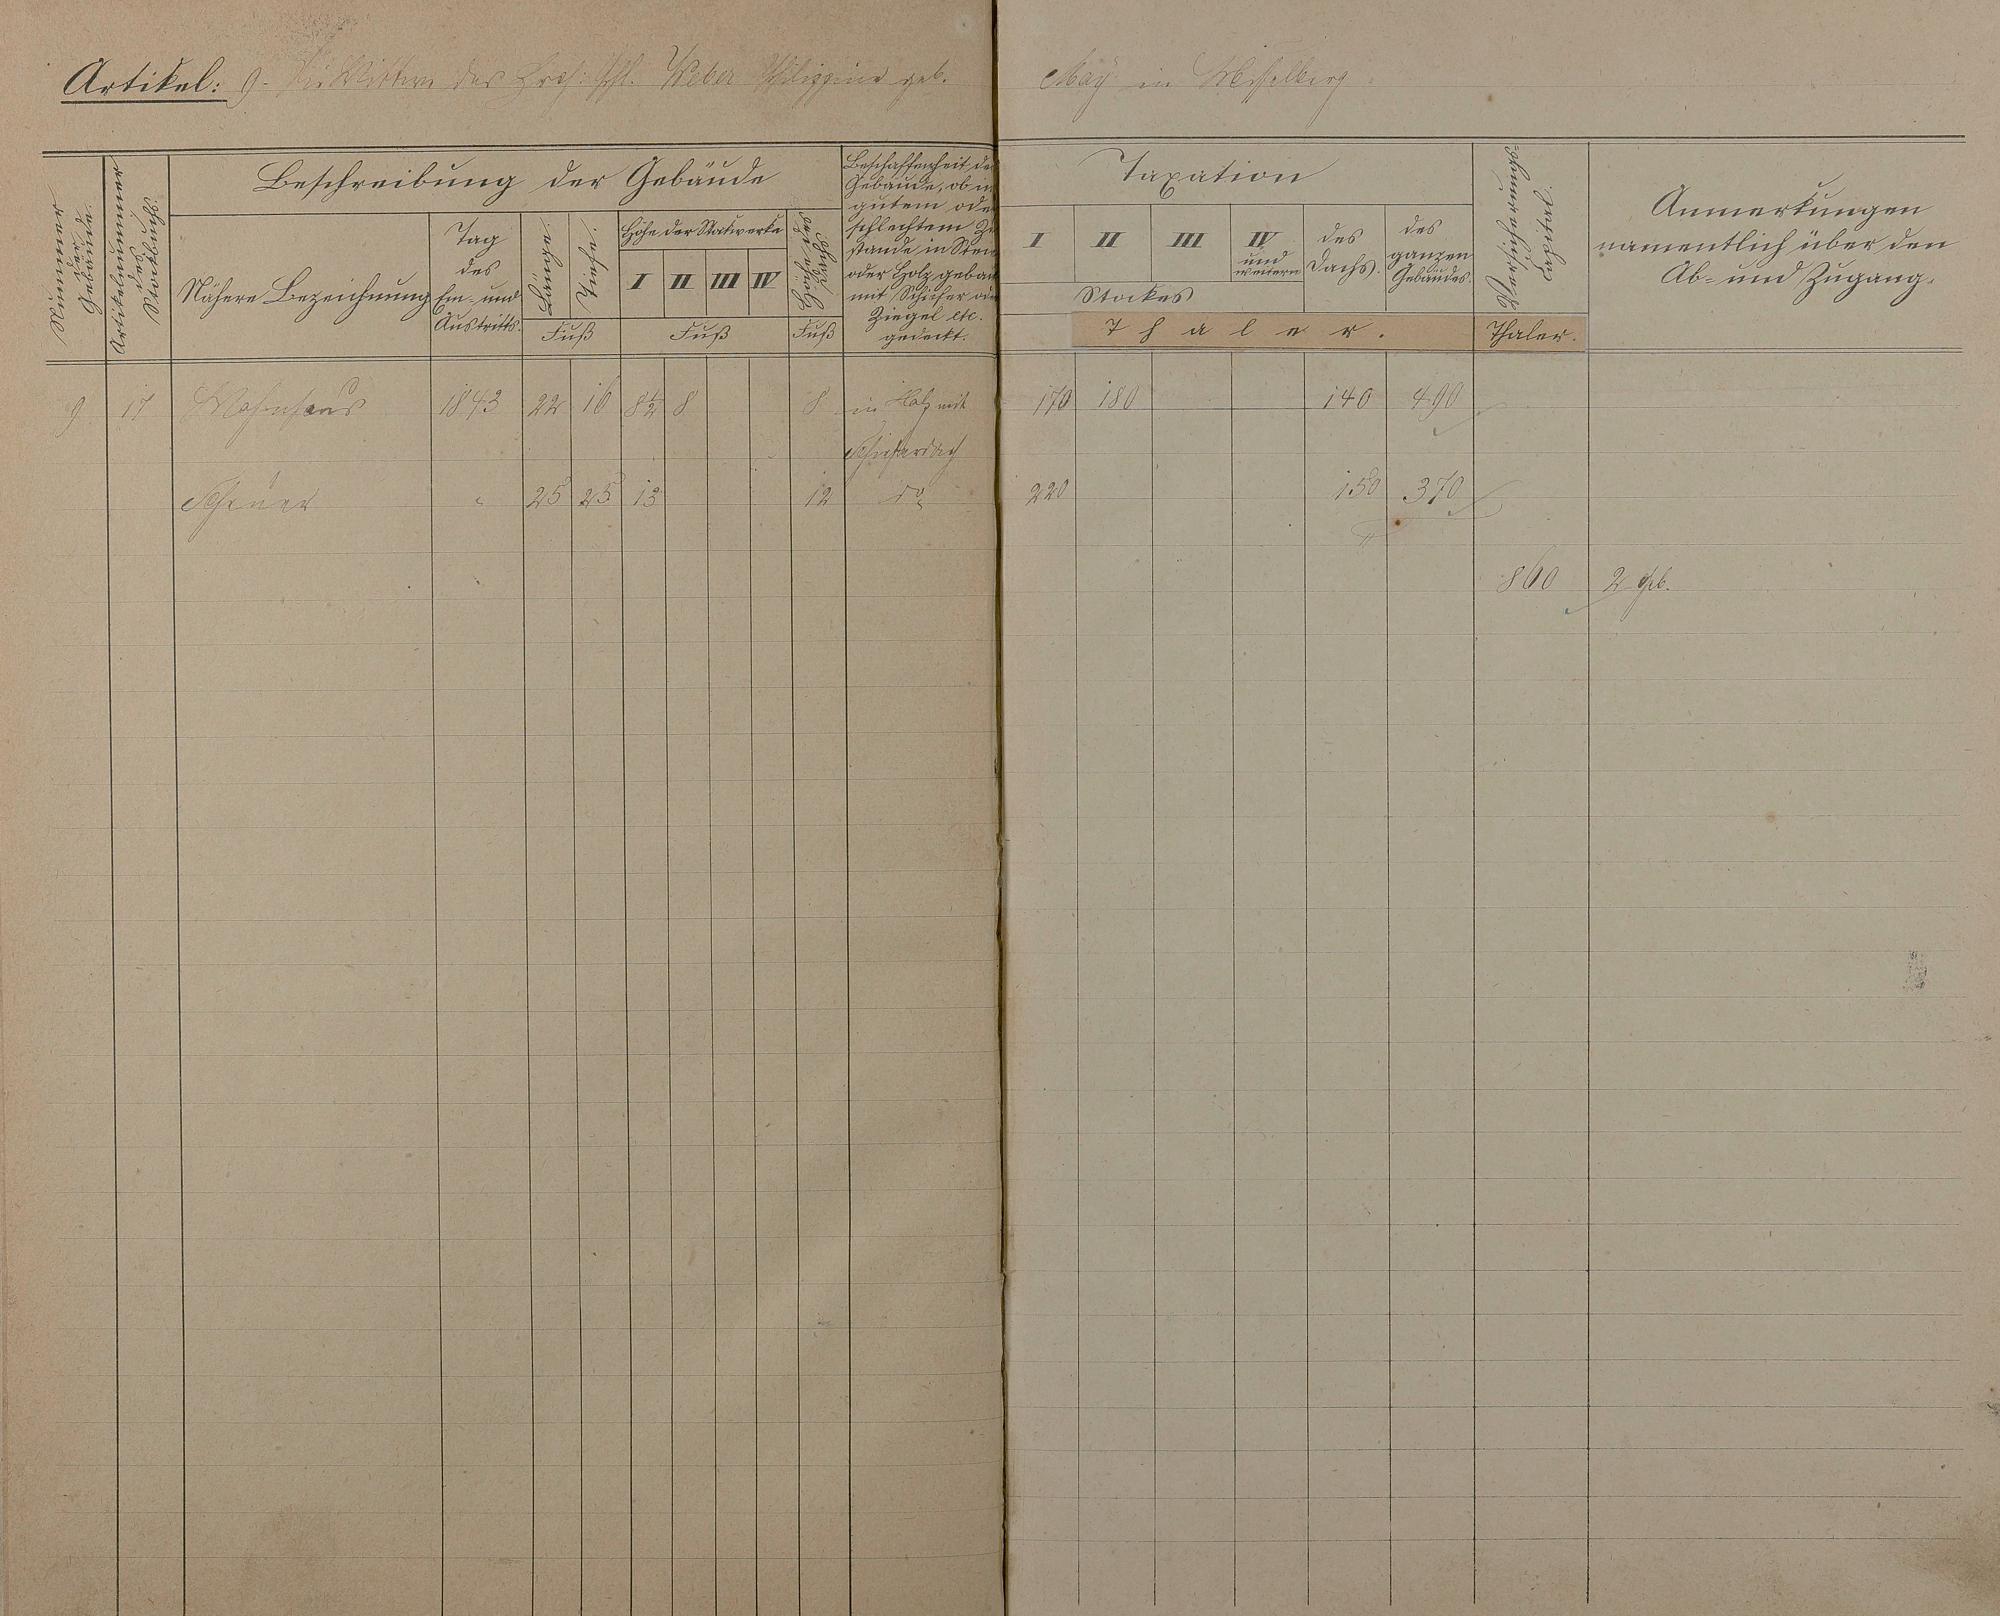 Artikel: 9. Die Wittwe des Phil. Weber Philippine geb. May in Misselberg
Nummer der Gebäude.
Artikelnummer des Stockbuchs.
Beschreibung der Gebäude
Nähere Bezeichnung
Tag des Ein- und Austritts.
Länge
Tiefe.
Fuß
Höhe der Stockwerke
I II III IV
Fuß
Höhe des Dachs
Fuß
Beschaffenheit der
Gebäude, ob in
gutem oder
schlechtem Zu-
stande, in Stein
oder Holz gebaut
mit Schiefer oder
Ziegel etc.
gedeckt.
Taxation
I II III IV und weitern
Stockes
des Dachs.
des ganzen Gebäudes.
Thaler.
Versicherungs-Capital.
Thaler.
Anmerkungen
namentlich über den
Ab- und Zugang.
9 17 Wohnhaus 1843 22 16 8½ 8 8 in Holz mit 170 180 140 490
Schieferdach
Scheuer " 25 25 13 12 do 220 150 370
860 2 Gb.